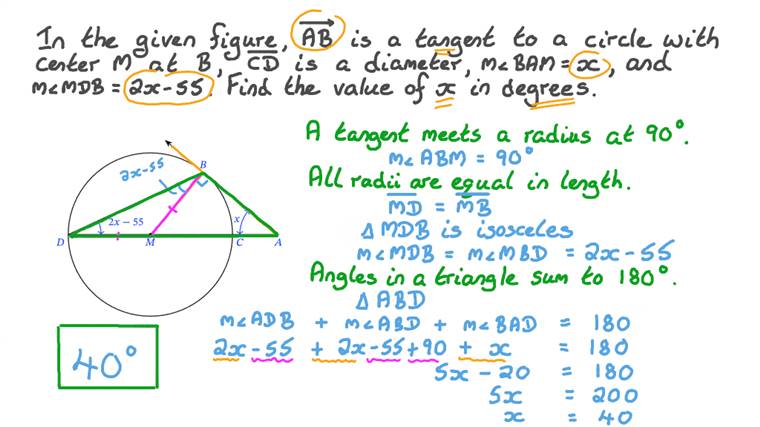 In the given figure, AB is a tangent to a circle with
center M at B, CD is a diameter, m∠BAM = x, and
m∠MDB = 2x-55. Find the value of x in degrees.
A tangent meets a radius at 90°.
m∠ABM = 90°
All radii are equal in length.
MD = MB
△MDB is isosceles
m∠MDB = m∠MBD = 2x-55
Angles in a triangle sum to 180°.
△ABD
m∠ADB + m∠ABD + m∠BAD = 180
2x-55 + 2x-55+90 + x = 180
5x - 20 = 180
5x = 200
x = 40
2x-55
B
2x − 55
x
D
M
C
A
40°